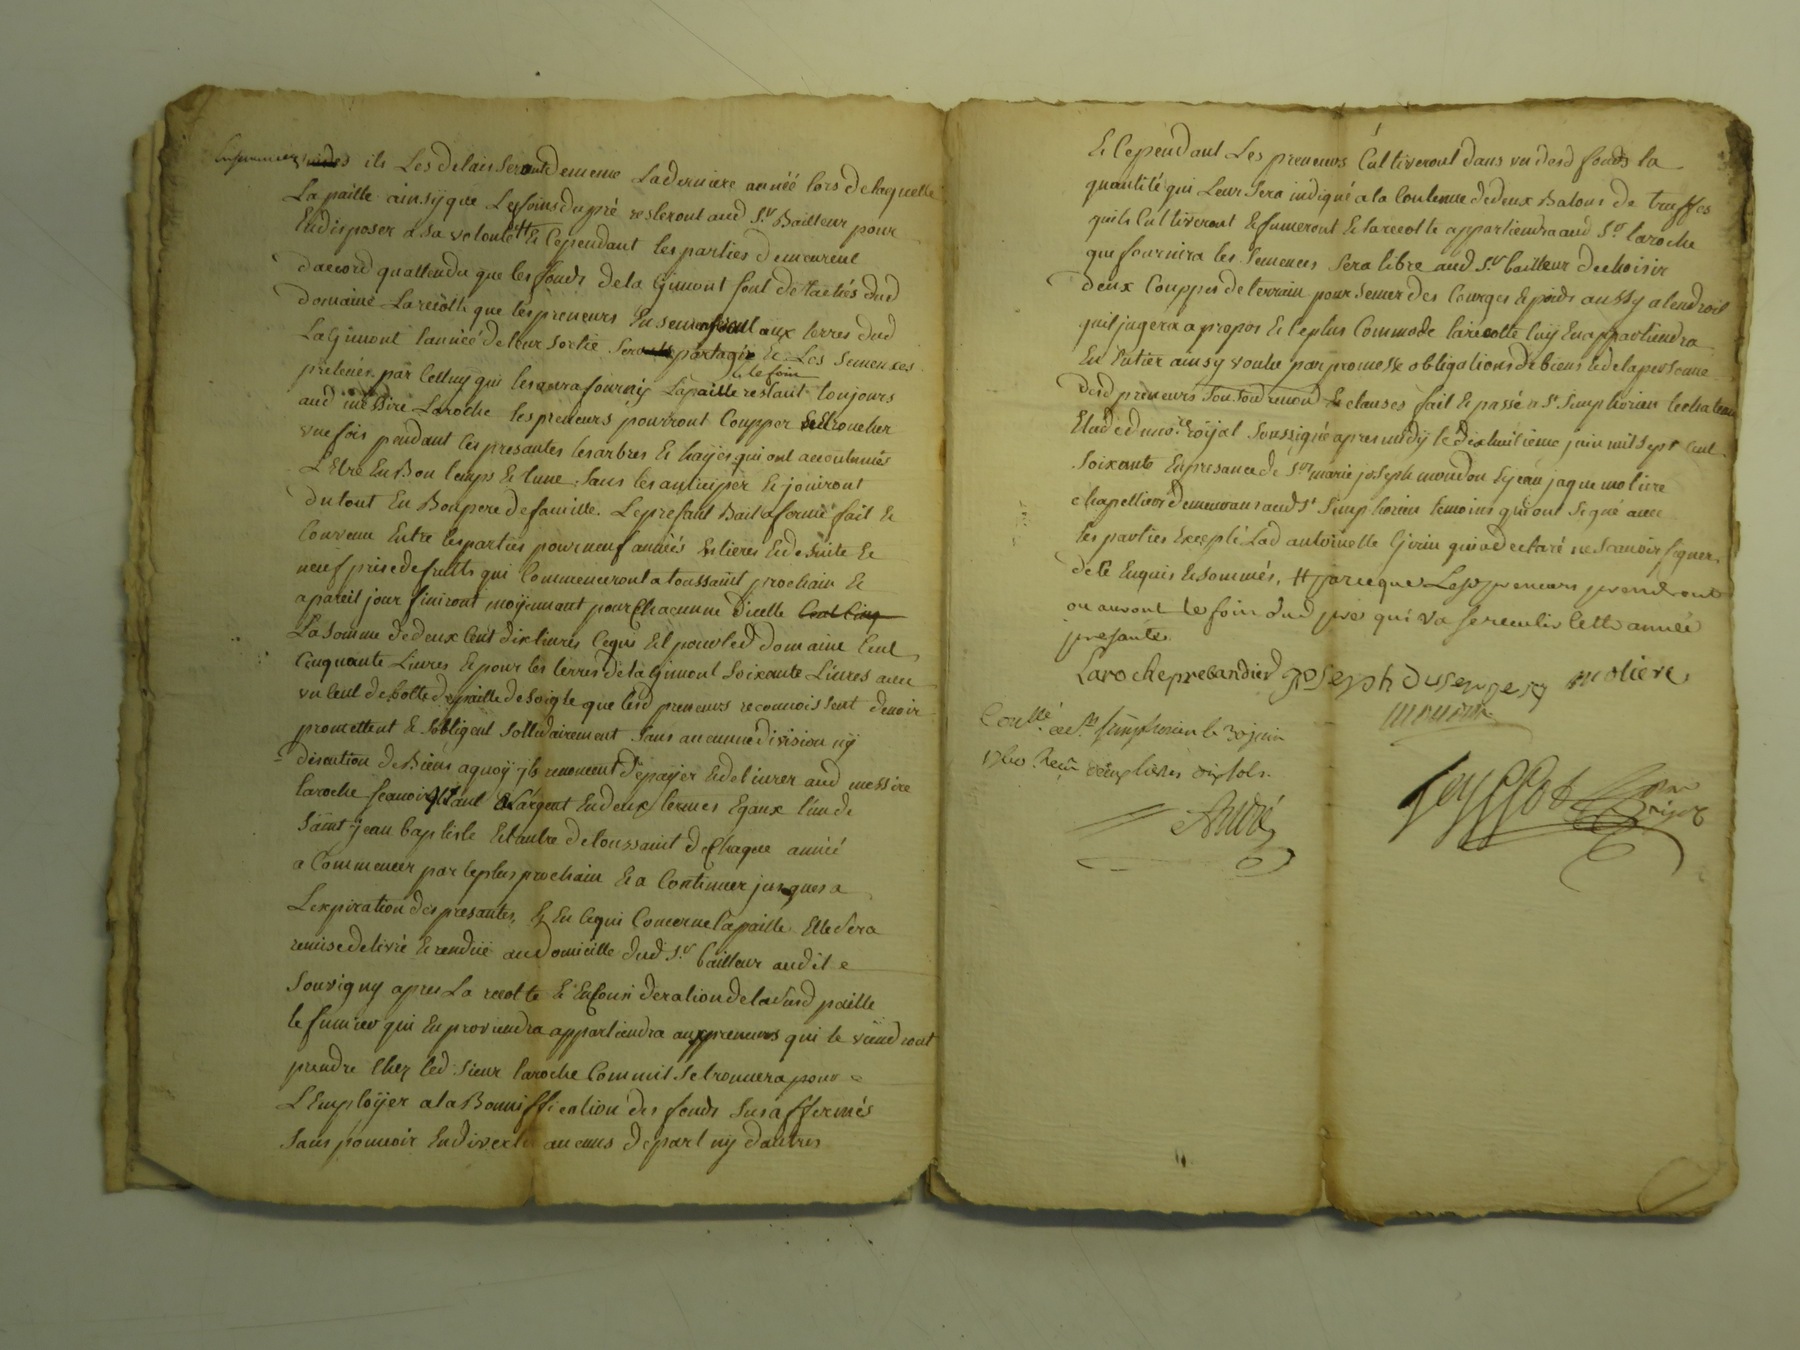 ils Les delaisseront de meme La derniere année lors de laquelle
La paille ainsy que Les foins du pré resteront aud Sr Bailleur pour
En disposer a sa volonté # Et Cependant les parties demeurent
daccord quattendu que les fonds de la Gimont sont détachés dud
domaine La recolte que les preneurs Ensemenseront aux terres dud
La Gimont lannée de leur Sortie Sera partagée Et Les Semences
prelevées par Celluy qui les aura fourny La paille & le foin restant toujours
aud messire Laroche les preneurs pourront Coupper Et Broucher
une fois pendant Les presantes les arbres Et hayes qui ont accoutumés
L'Etre En Bon temps Et lune Sans les anticiper Et jouiront
du tout En Bon pere de famille. Le presant Bail a ferme fait Et
Convenu Entre les parties pour neuf années Entieres Et de Suite Et
neuf prise de fruits qui Commenceront a toussaint prochain Et
a pareil jour finiront moyennant pour Chacunne dicelle Cent Cinq
La Somme de deux Cent dix livres Cequi Est pour led domaine Cent
Cinquante Livres Et pour les terres de la Gimont Soixante Livres avec
un Cent de botte de paille de Soigle que lesd preneurs reconnoissent devoir
promettent Et Sobligent Sollidairement Sans aucunne division ny
discution de Biens aquoy ils renoncent de payer Et delivrer aud messire
laroche scavoir quant a Largent En deux termes Egaux l'un de
Saint jean baptiste Et lautre de toussaint de Chaque année
a Commencer par le plus prochain Et a Continuer jusques a
Lexpiration des presantes, & En Cequi Concerne la paille Elle Sera
remise delivré Et rendüe au Domicille dud Sr bailleur audit
Souvigny apres La recolte Et En Consideration de la susd paille
le fumier qui En proviendra appartiendra aux preneurs qui le viendront
prendre Chez led Sieur laroche Comm il Se trouvera pour
L'Employer a la Bonniffication des fonds Sus affermés
Sans pouvoir En divertir aucuns de part ny dautres
Et Cependant Les preneurs Cultiveront dans un desd fonds la
quantité qui Leur Sera indiqué a la Contenue de deux Batons de truffes
quils Cultiveront Et fumeront Et la recolte appartiendra aud Sr laroche
que fournira les Semences Sera libre aud Sr bailleur de choisir
deux Couppes de terrain pour Semer des Courges & poids aussy a lendroit
quil jugera a propos Et le plus Commode la recolte luy En appartiendra
En Entier ainsy voulu par promesse obligations de biens & de la personne
desd preneurs Sou Soub renond & clauses fait & passé a St Simphorien le chateau
Etude du nore royal Soussigné apres midy le dixhuitieme juin mil Sept Cent
Soixante En presance de Srs marie joseph moudon & jean jaque moliere
chapelliers demeurans aud St Simphorien temoins qui ont Signé avec
les parties Excepté Lad antoinette Girin qui a declaré ne Scavoir Signer
de Ce Enquis & Sommés, # parceque Lesd preneurs prendront
ou auront le foin dud pré qui va se recullir Cette année
presante
Laroche prebandier joseph moliere
Conllé a St simphorien le 30 juin
1760 Reçu livres dix sols
André